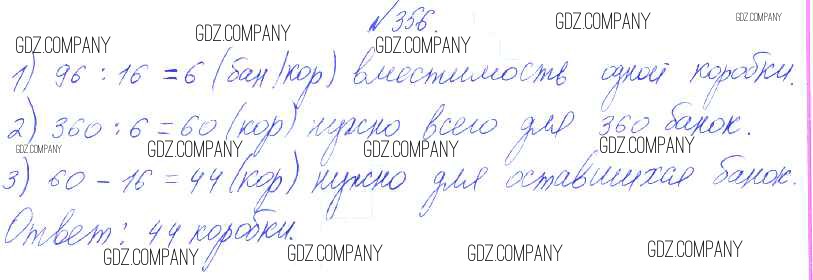 №356.
GDZ.COMPANY GDZ.COMPANY GDZ.COMPANY GDZ.COMPANY
1) 96 : 16 = 6 (бан/кор) вместимость одной коробки.
2) 360 : 6 = 60 (кор) нужно всего для 360 банок.
GDZ.COMPANY GDZ.COMPANY GDZ.COMPANY GDZ.COMPANY
3) 60 - 16 = 44 (кор) нужно для оставшихся банок.
Ответ: 44 коробки.
GDZ.COMPANY GDZ.COMPANY GDZ.COMPANY GDZ.COMPANY